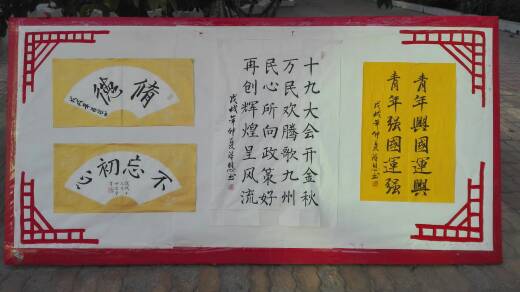 修德
不忘初心
十九大会开金秋
万民欢腾歌九州
民心所向政策好
再创辉煌呈风流
戊戌年仲夏
青年興國運興
青年强國運强
戊戌年仲夏